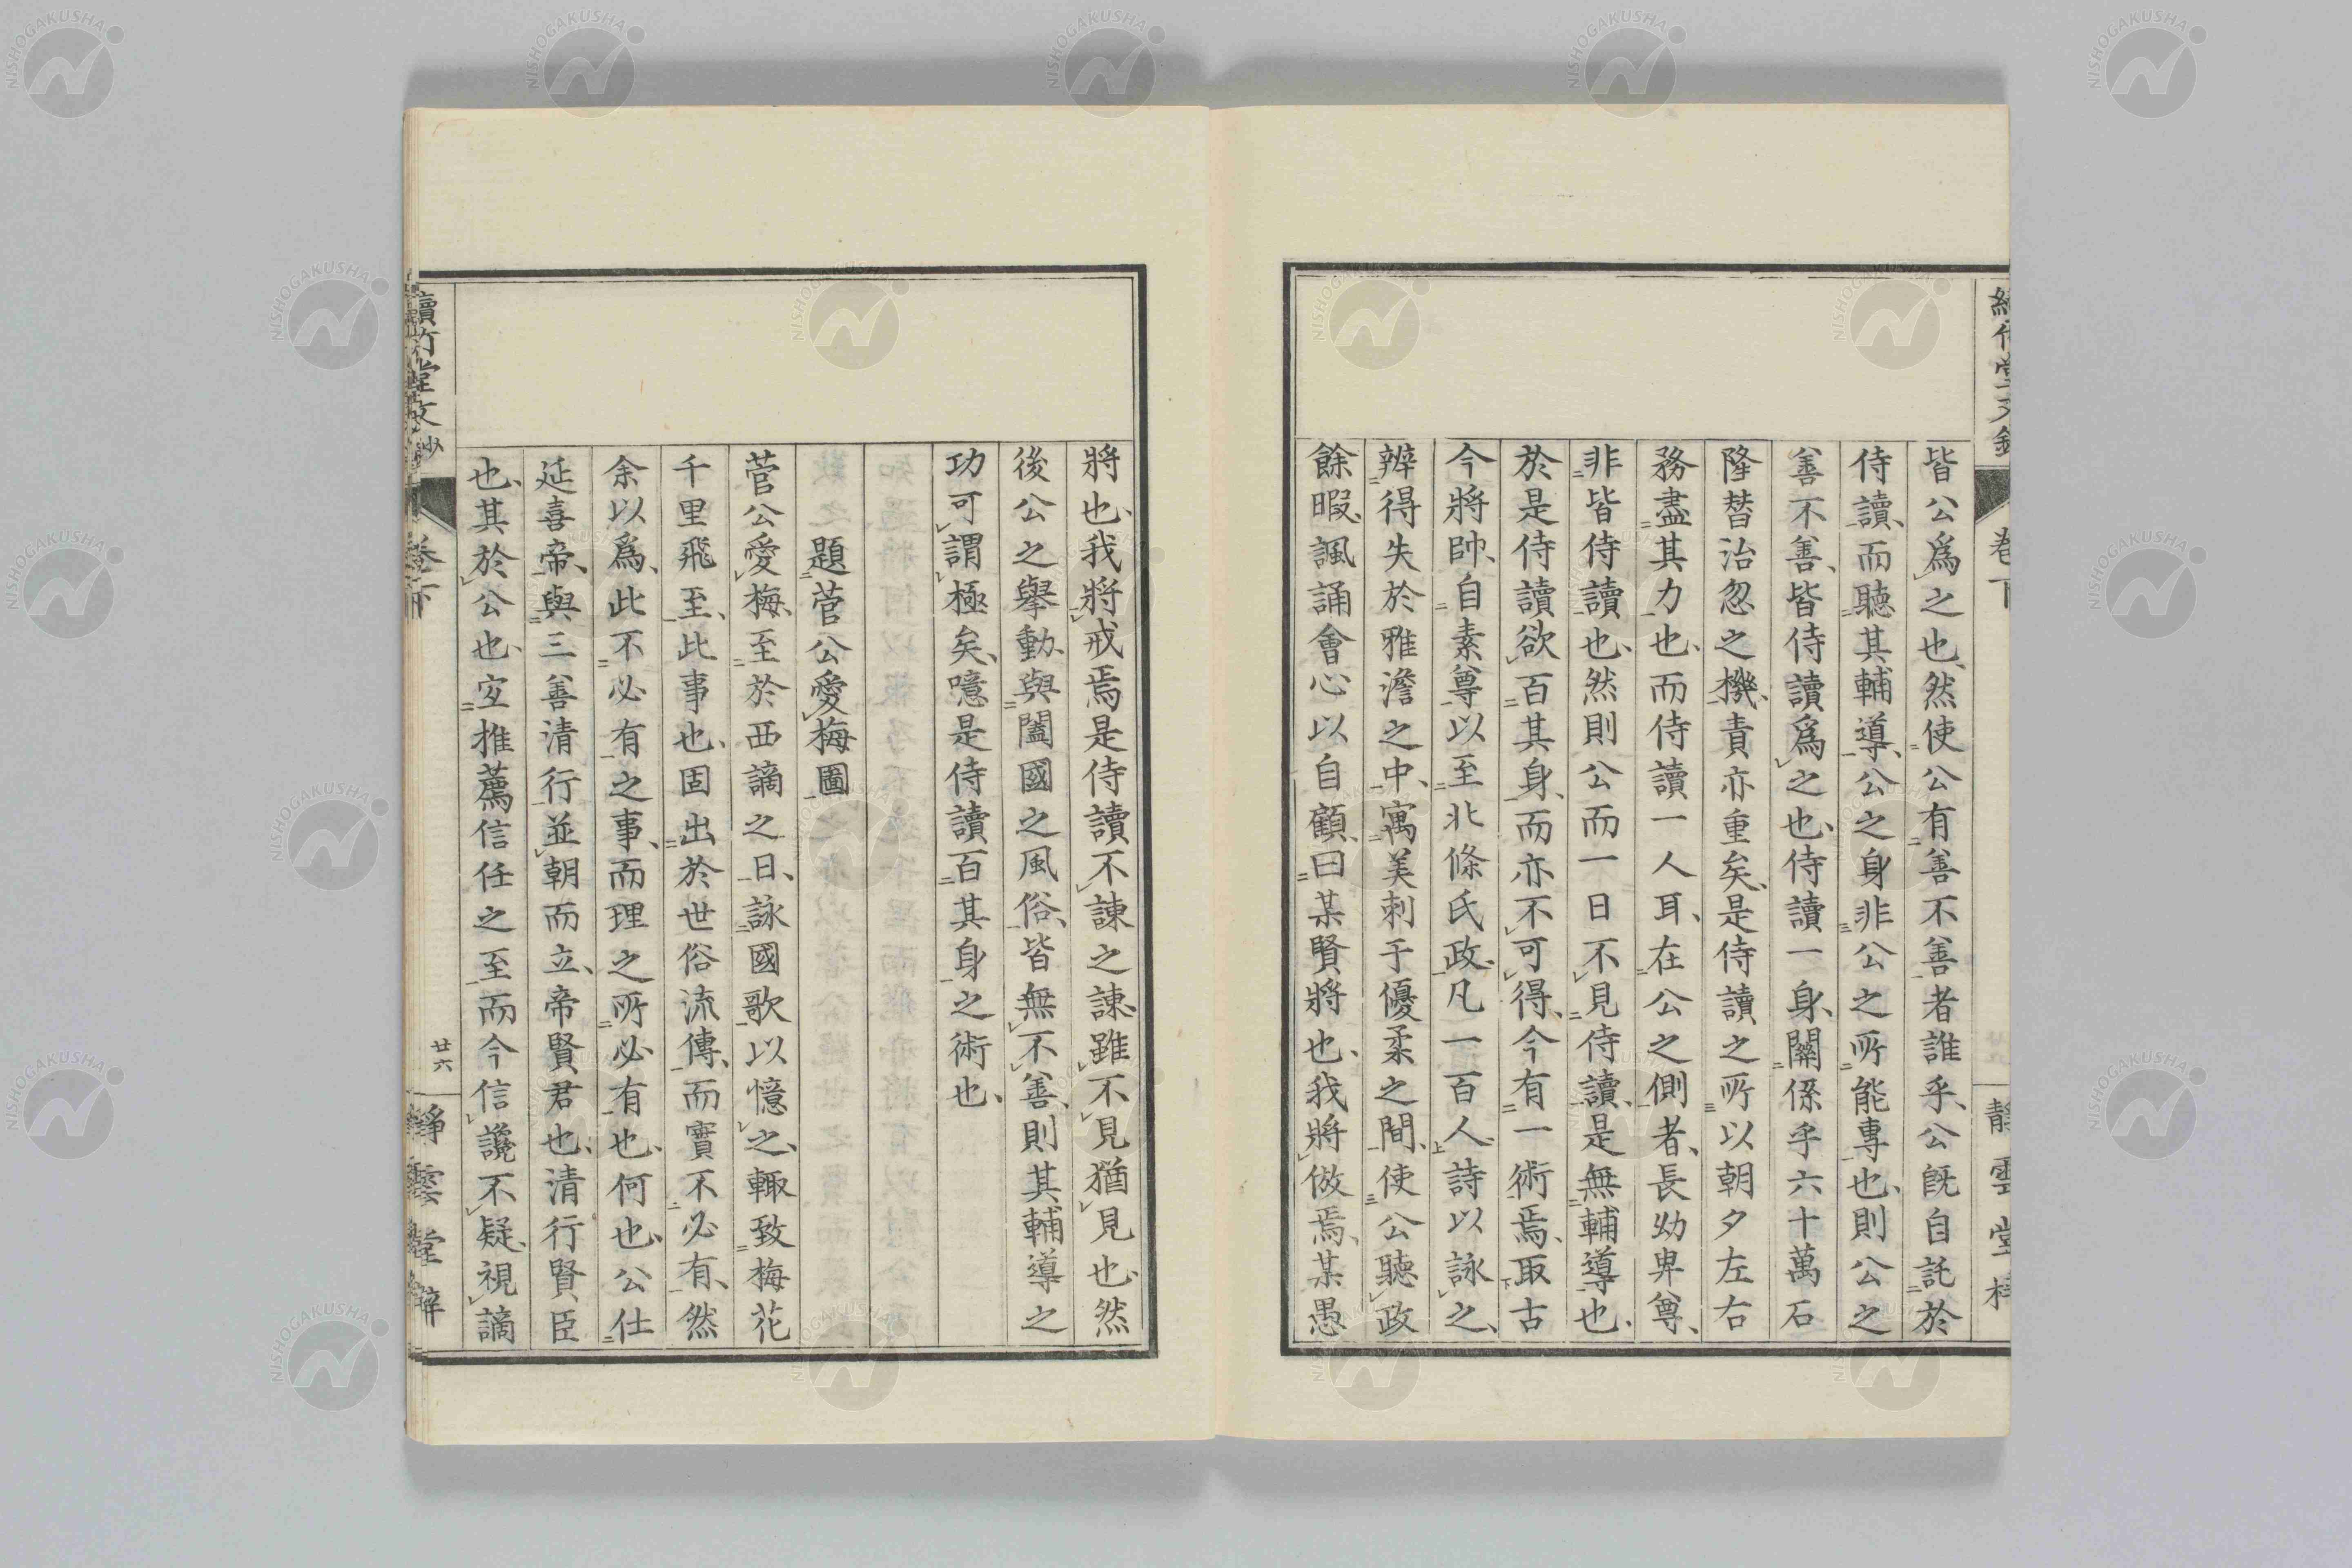 皆公爲之也、然使公有善不善者誰乎、公既自託於
侍讀、而聽其輔導、公之身非公之所能專也、則公之
善不善、皆侍讀爲之也、侍讀一身、關係乎六十萬石
隆替治忽之機、責亦重矣、是侍讀之所以朝夕左右
務盡其力也、而侍讀一人耳、在公之側者、長幼卑尊、
非皆侍讀也、然則公而一日不見侍讀、是無輔導也、
於是侍讀欲百其身、而亦不可得、今有一術焉、取古
今將帥、自素尊以至北條氏政、凡一百人、詩以詠之、
辨得失於雅澹之中、寓美刺于優柔之間、使公聽政
餘暇、諷誦會心以自顧、曰某賢將也、我將倣焉、某愚
將也、我將戒焉、是侍讀不諫之諫、雖不見猶見也、然
後公之擧動、與闔國之風俗、皆無不善、則其輔導之
功可謂極矣、噫是侍讀百其身之術也、
題菅公愛梅圖
菅公愛梅、至於西謫之日、詠國歌以憶之、輙致梅花
千里飛至、此事也、固出於世俗流傳、而實不必有、然
余以爲、此不必有之事、而理之所必有也、何也、公仕
延喜帝、與三善清行並朝而立、帝賢君也、清行賢臣
也、其於公也、宜推薦信任之至、而今信讒不疑、視謫
續竹堂文鈔
卷下
廿六
靜雲堂梓